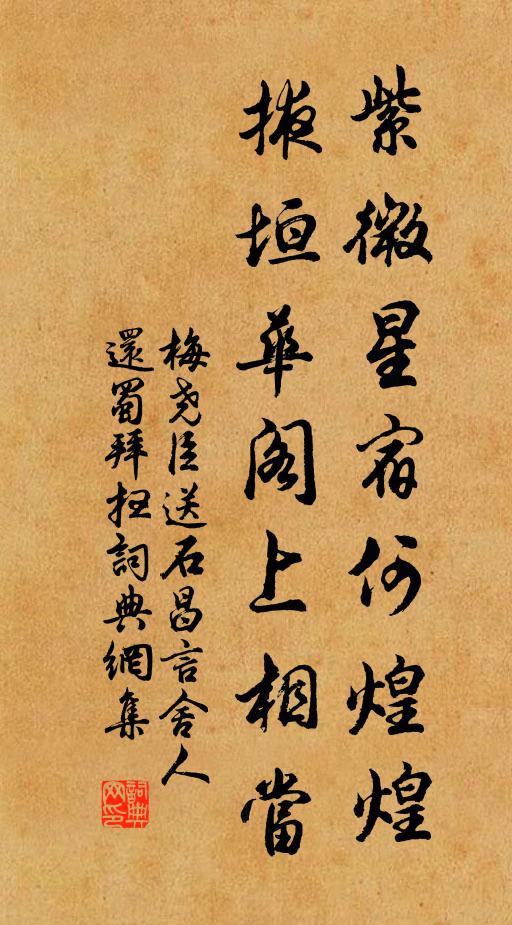 紫微星宿何煌煌
掖垣華阁上相當
梅尧臣送石昌言舍人
還蜀拜扫詞典網集
詞典
网印